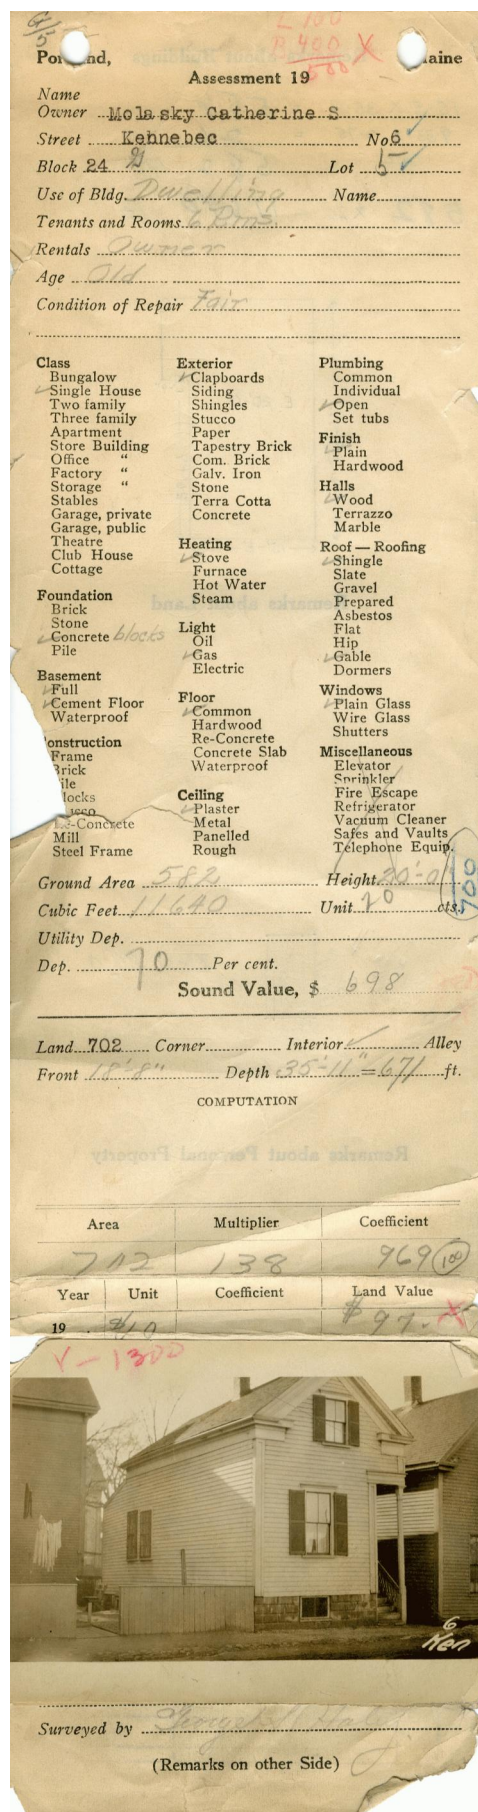 G/5
L 100
B 400 X
500
Portland, Maine
Assessment 19
Name
Owner Molasky Catherine S
Street Kennebec No 6
Block 24 G Lot 5
Use of Bldg. Dwelling Name
Tenants and Rooms 6 Rms.
Rentals Owner
Age Old
Condition of Repair Fair
Class
Bungalow
Single House
Two family
Three family
Apartment
Store Building
Office "
Factory "
Storage "
Stables
Garage, private
Garage, public
Theatre
Club House
Cottage
Foundation
Brick
Stone
Concrete blocks
Pile
Basement
Full
Cement Floor
Waterproof
onstruction
Frame
Brick
ile
locks
ucco
Re-Concrete
Mill
Steel Frame
Exterior
Clapboards
Siding
Shingles
Stucco
Paper
Tapestry Brick
Com. Brick
Galv. Iron
Stone
Terra Cotta
Concrete
Heating
Stove
Furnace
Hot Water
Steam
Light
Oil
Gas
Electric
Floor
Common
Hardwood
Re-Concrete
Concrete Slab
Waterproof
Ceiling
Plaster
Metal
Panelled
Rough
Plumbing
Common
Individual
Open
Set tubs
Finish
Plain
Hardwood
Halls
Wood
Terrazzo
Marble
Roof — Roofing
Shingle
Slate
Gravel
Prepared
Asbestos
Flat
Hip
Gable
Dormers
Windows
Plain Glass
Wire Glass
Shutters
Miscellaneous
Elevator
Sprinkler
Fire Escape
Refrigerator
Vacuum Cleaner
Safes and Vaults
Telephone Equip.
Ground Area 582 Height 20'-0"
Cubic Feet 11640 Unit 20 cts.
700
Utility Dep.
Dep. 70 Per cent.
Sound Value, $ 698
Land 702 Corner Interior ✓ Alley
Front 18'-8" Depth 35'-11" = 671 ft.
COMPUTATION
Remarks about Personal Property
Area Multiplier Coefficient
702 138 969 100
Year Unit Coefficient Land Value
19 $10 $97. X
Y - 1300
6
Ken
Surveyed by
(Remarks on other Side)